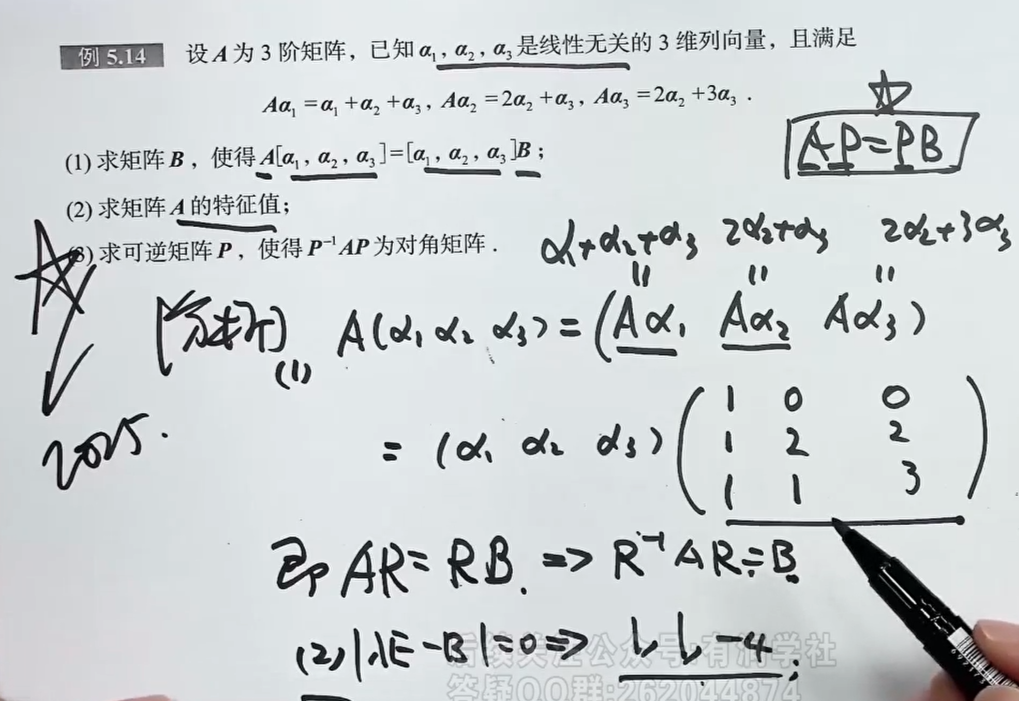 例 5.14 设 A 为 3 阶矩阵，已知 α₁，α₂，α₃ 是线性无关的 3 维列向量，且满足
Aα₁ = α₁ + α₂ + α₃，Aα₂ = 2α₂ + α₃，Aα₃ = 2α₂ + 3α₃ .
AP=PB
(1) 求矩阵 B，使得 A[α₁，α₂，α₃]=[α₁，α₂，α₃]B；
(2) 求矩阵 A 的特征值；
3) 求可逆矩阵 P，使得 P⁻¹AP 为对角矩阵 .
α₁+α₂+α₃ 2α₂+α₃ 2α₂+3α₃
[分析] A(α₁ α₂ α₃) = (Aα₁ Aα₂ Aα₃)
(1)
= (α₁ α₂ α₃) (1 0 0
1 2 2
1 1 3)
2025.
即 AR = RB. => R⁻¹AR = B
(2) |λE-B|=0 => 1, 1, -4;
后续关注公众号:有洞学社
答疑QQ群:262044874